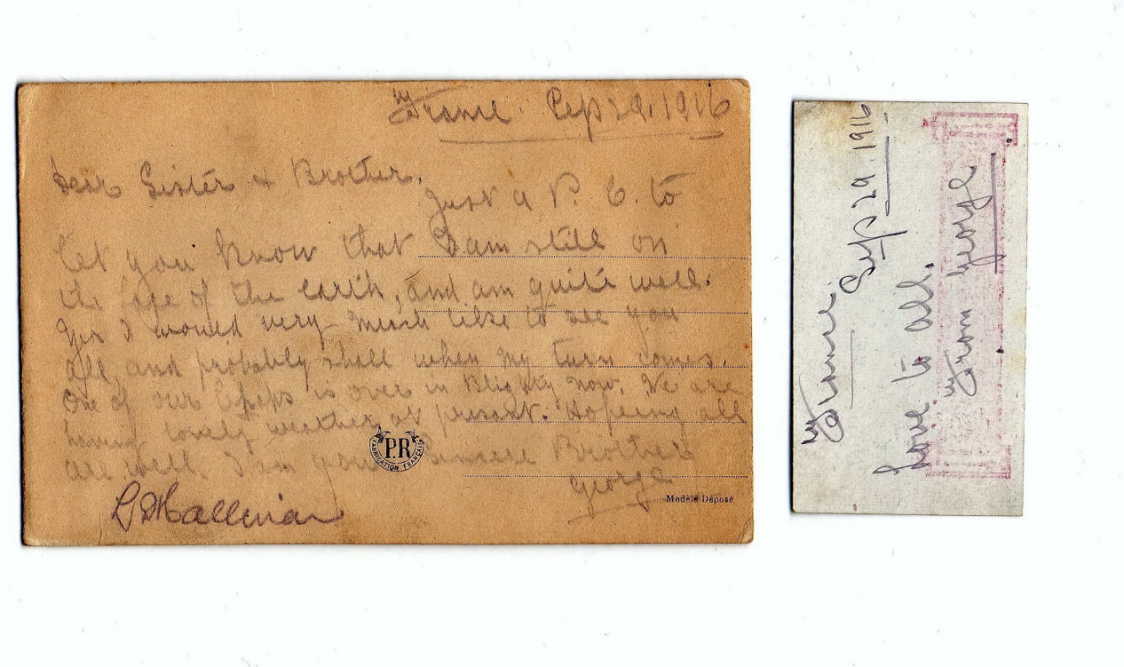 France. Sep 29. 1916
Dear Sister & Brother.
Just a P. C. to
let you know that I am still on
the face of the earth, and am quite well.
Yes I would very much like to see you
all and probably shall when my turn comes.
One of our is over in Blighty now. We are
having lovely weather at present. Hopeing all
are well. I am your sincere Brother
George
P.R
FABRICATION FRANÇAISE
Modèle Déposé
France.
Sep 29. 1916
Love to all.
From George